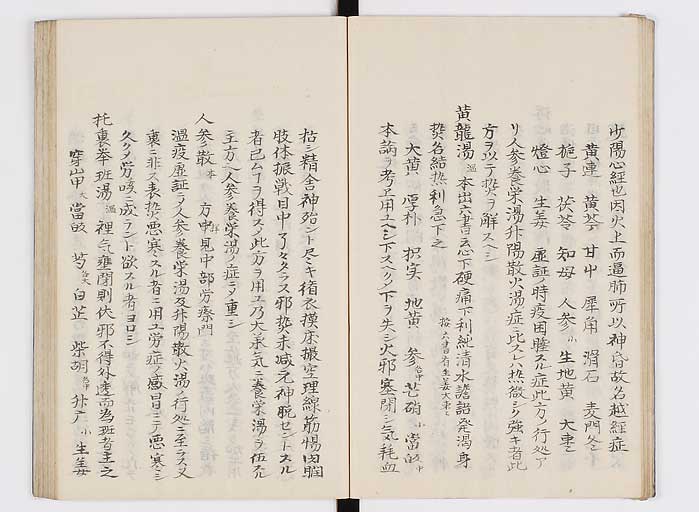 少陽心経也因火上而逼肺所以神昏故名越経症
黄連 黄芩 甘中 犀角 滑石 麦門冬
梔子 茯苓 知母 人参小 生地黄 大棗
燈心 生姜 虚証ノ時疫困睡スル症此方ノ行処ア
リ人参養栄湯升陽散火湯ノ症ニ比スレハ熱微シク強キ者此
方ヲ以テ熱ヲ解スヘシ
黄龍湯 本出六書云心下硬痛下利純清水譫語発渇身
熱名結熱利急下之
大黄 厚朴 枳実 地黄 参 芒硝小 當帰中
本論ヲ考エ用ユヘシ下スヘクノ下ヲ失シ火邪塞閉シ気耗血
枯シ精舎神殆ント尽キ循衣摸床撮空理線筋惕肉瞤
肢体振戦目中了々タラス邪熱未减元神脱セントスル
者已ムヿヲ得ス此方ヲ用ユ乃大承気ニ養栄湯ヲ伍スル
主方ニ人参養栄湯ノ症ニノ重シ
人参散 本 方見中部労療門
温疫虚証ニノ人参養栄湯及升陽散火湯ノ行処ニ至ラス又
裏ニ非ス表熱悪寒スル者ニ用ユ労症ノ感冒ニテ悪寒シ
久クノ労咳ニ成ラント欲スル者ヨロシ
托裏挙斑湯 温 裡気壅閉則伏邪不得外透而為斑者主之
穿山甲大 當帰 芍 白芷 柴胡 升广小 生姜